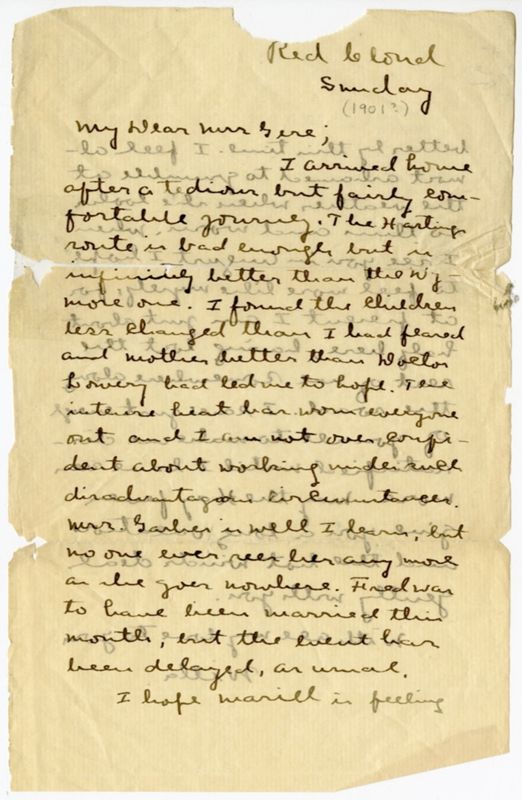 Red Cloud
Sunday
(1901?)
My Dear Mrs Gere;
I arrived home
after a tedious, but fairly com-
fortable journey. The Hastings
route is bad enough but is
infinitely better than the Wy-
more one. I found the children
less changed than I had feared
and mother better than Doctor
Lowery had led me to hope. The
intense heat has worn everyone
out and I am not over confi-
dent about working under such
disadvantagous circumstances.
Mrs. Garber is well I learn, but
no one ever sees her any more
as she goes nowhere. Fred was
to have been married this
month, but the event has
been delayed, as usual.
I hope Mariel is feeling